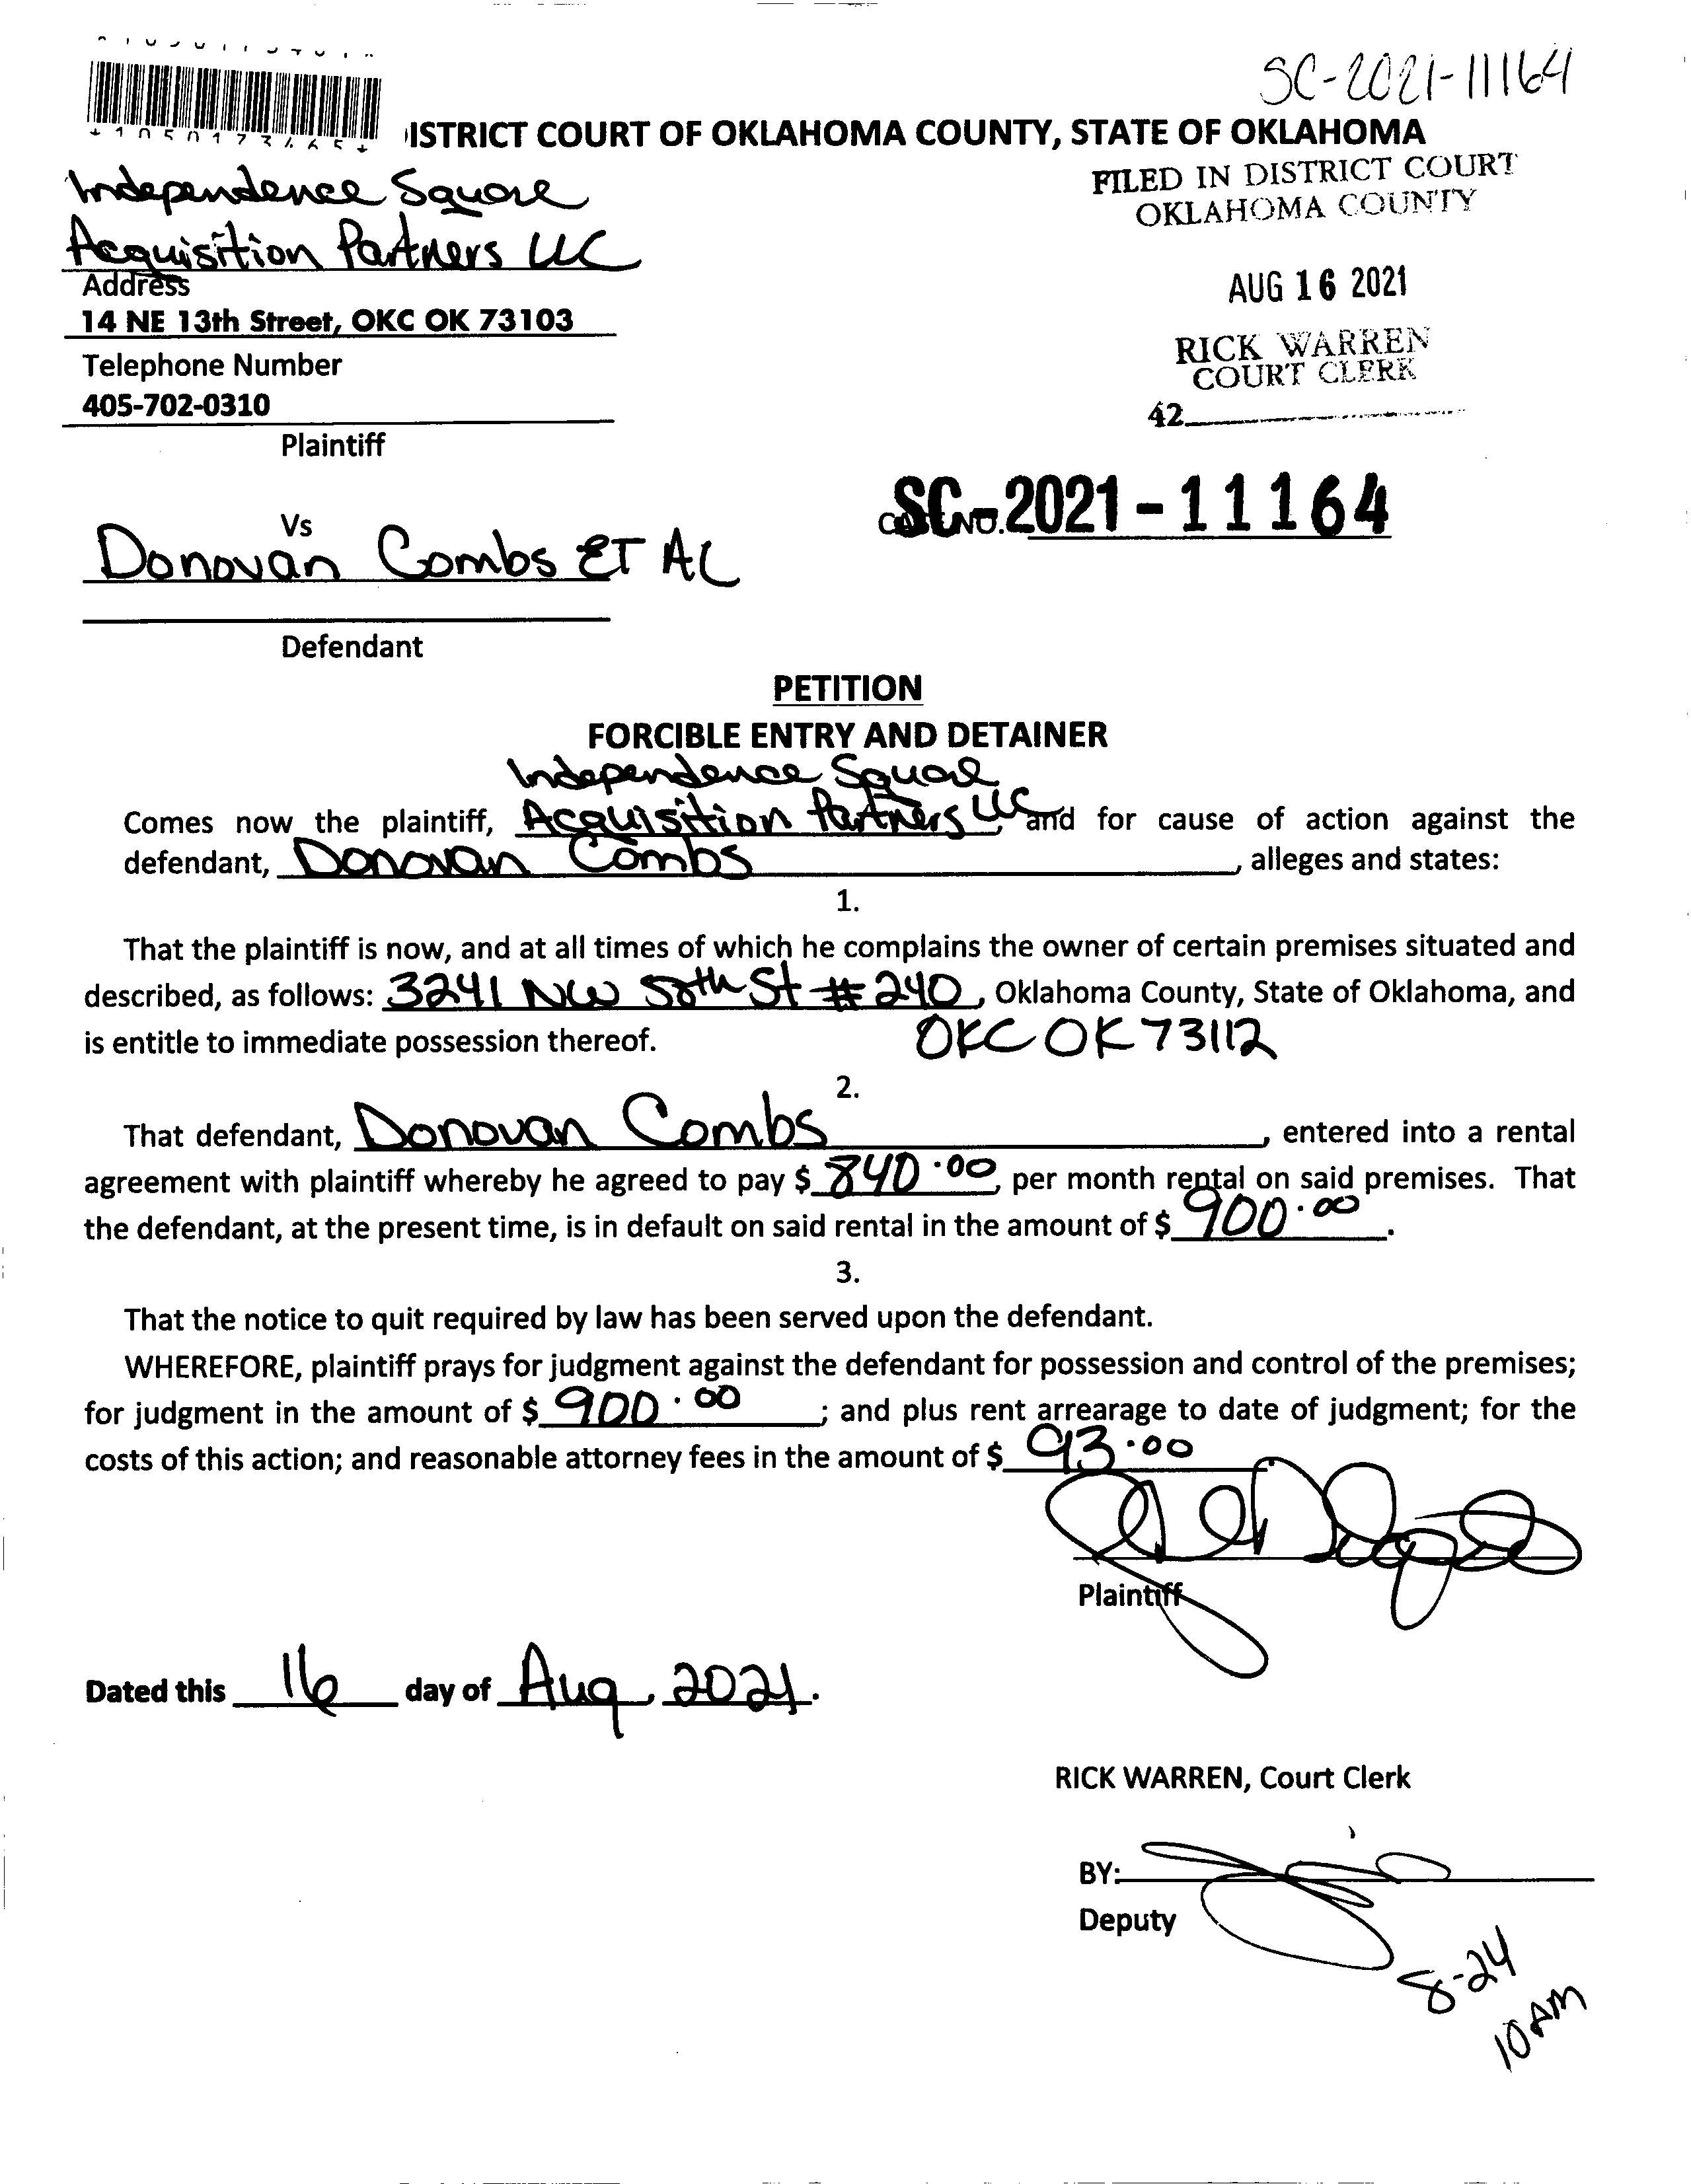 SC-2021-11164
ISTRICT COURT OF OKLAHOMA COUNTY, STATE OF OKLAHOMA
Independence Square
Acquisition Partners LLC
Address
14 NE 13th Street, OKC OK 73103
Telephone Number
405-702-0310
Plaintiff
FILED IN DISTRICT COURT
OKLAHOMA COUNTY
AUG 16 2021
RICK WARREN
COURT CLERK
42
SC-2021-11164
Vs
Donovan Combs ET AL
Defendant
PETITION
FORCIBLE ENTRY AND DETAINER
Independence Square
Comes now the plaintiff, Acquisition Partners LLC, and for cause of action against the
defendant, Donovan Combs, alleges and states:
1.
That the plaintiff is now, and at all times of which he complains the owner of certain premises situated and
described, as follows: 3241 NW St # 240, Oklahoma County, State of Oklahoma, and
is entitle to immediate possession thereof. OKC OK 73112
2.
That defendant, Donovan Combs, entered into a rental
agreement with plaintiff whereby he agreed to pay $ 840.00, per month rental on said premises. That
the defendant, at the present time, is in default on said rental in the amount of $ 900.00.
3.
That the notice to quit required by law has been served upon the defendant.
WHEREFORE, plaintiff prays for judgment against the defendant for possession and control of the premises;
for judgment in the amount of $ 900.00; and plus rent arrearage to date of judgment; for the
costs of this action; and reasonable attorney fees in the amount of $ 93.00
Plaintiff
Dated this 16 day of Aug, 2021.
RICK WARREN, Court Clerk
BY:
Deputy
8-24
10 AM